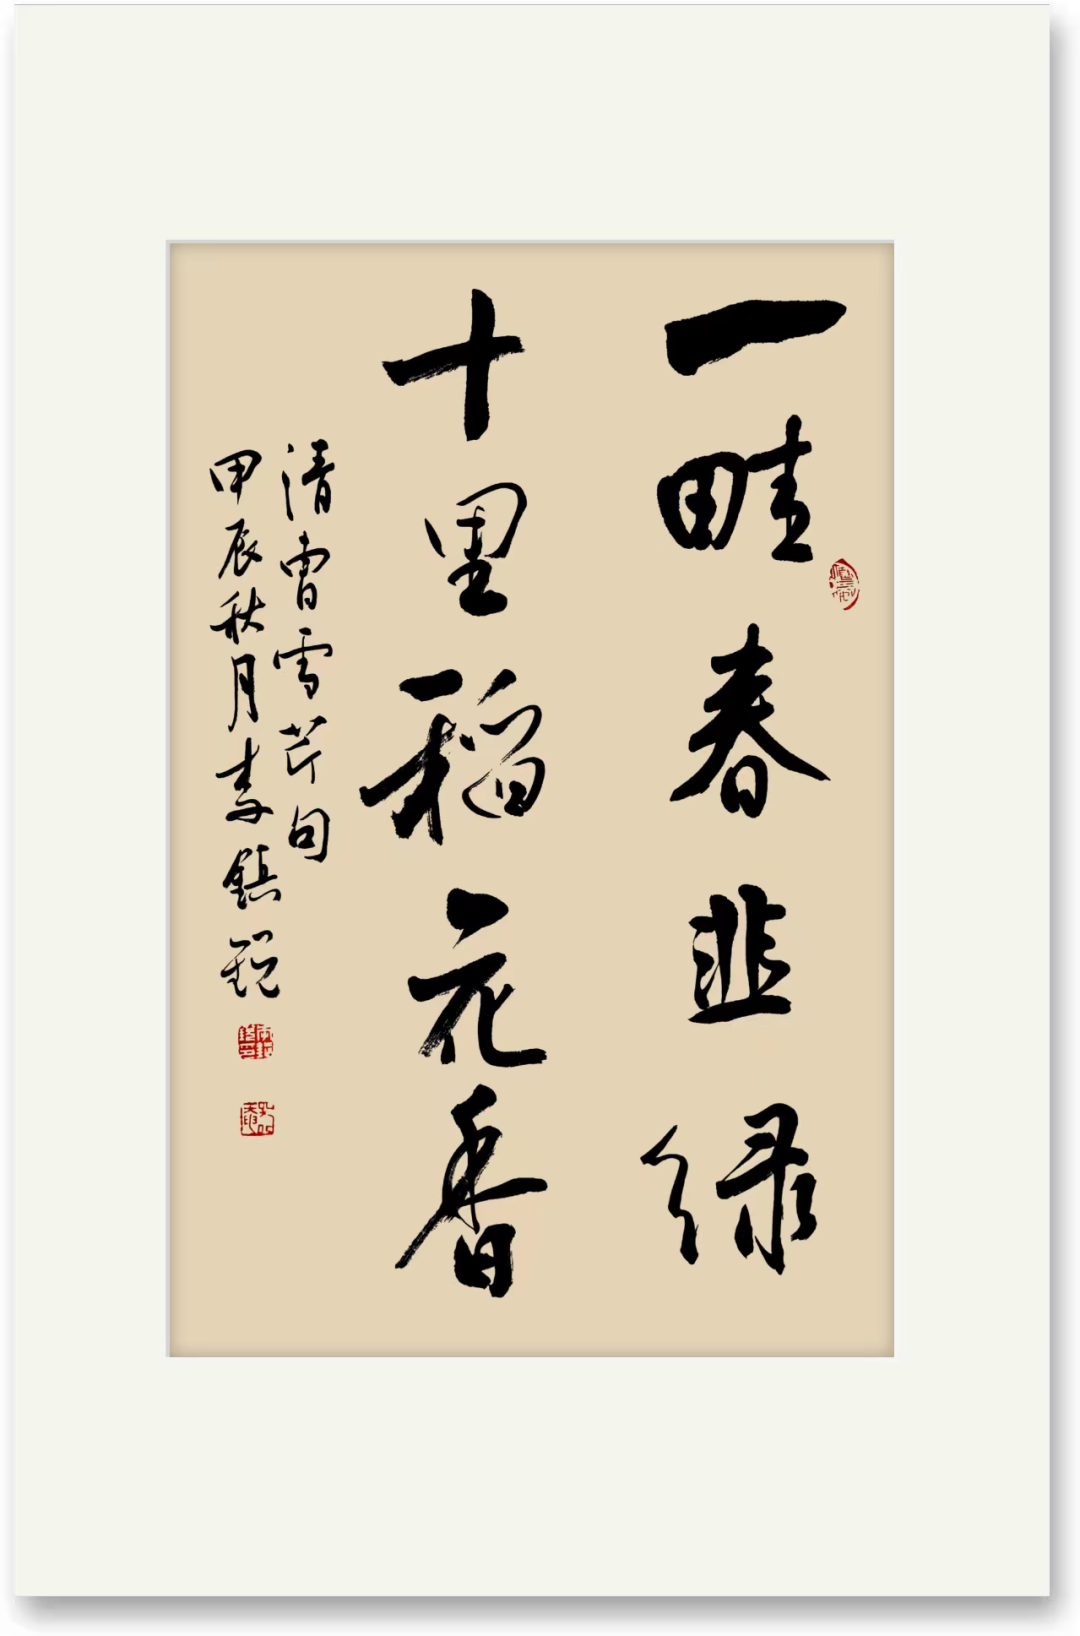 一畦春韭绿
十里稻花香
清曹雪芹句
甲辰秋月李鎮锐